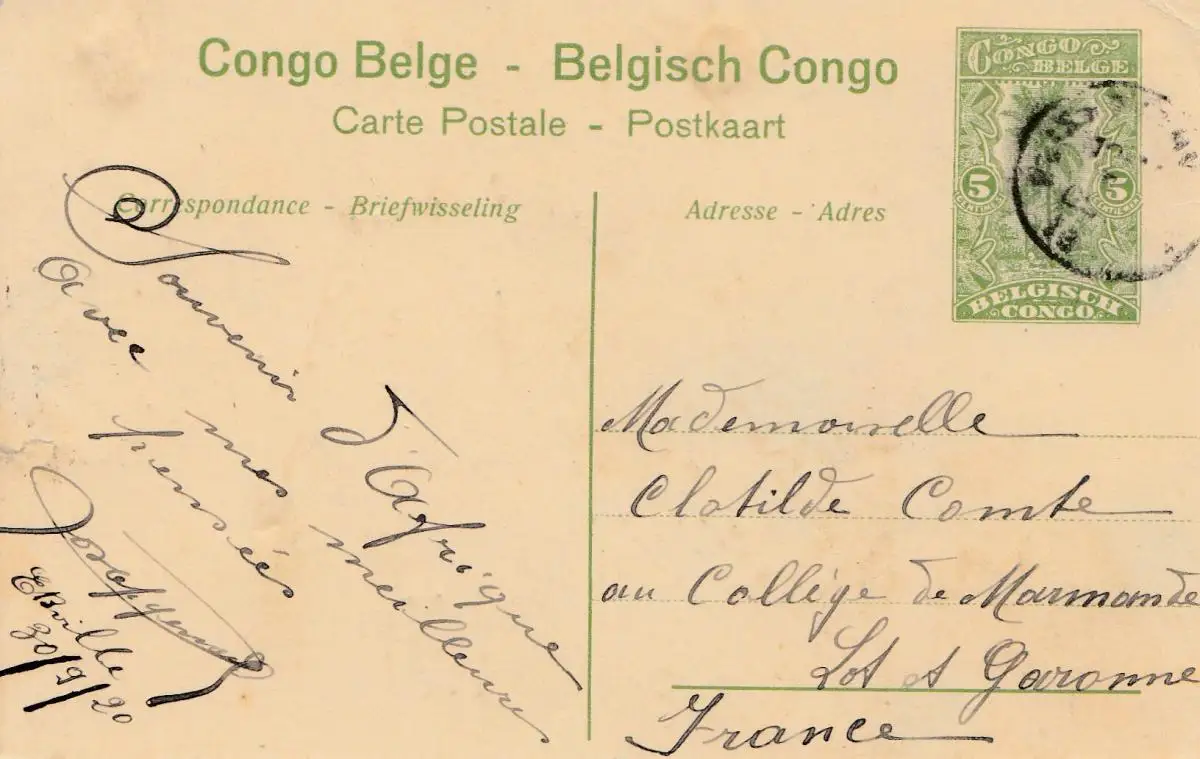 Congo Belge - Belgisch Congo
Carte Postale - Postkaart
CONGO
BELGE
5 5
CENTIMES CENTIMES
BELGISCH
CONGO
Correspondance - Briefwisseling
Adresse - Adres
Souvenir d'Afrique
avec mes meilleures
pensées
EBville
30/9/20
Mademoiselle
Clotilde Comte
au Collège de Marmande
Lot et Garonne
France